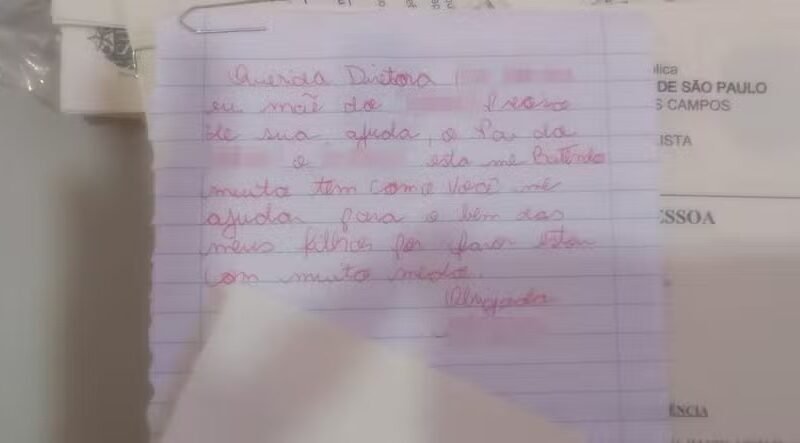 Querida Diretora
eu mãe do Preciso
de sua ajuda, o Pai da
e esta me Batendo
muito tem como você me
ajudar para o bem dos
meus filhos por favor estou
com muito medo.
Obrigada
ública
DE SÃO PAULO
S CAMPOS
ISTA
ESSOA
ÊNCIA